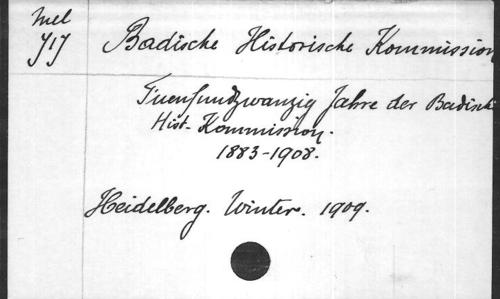 Mel
717
Badische Historische Kommission
Fuenfundzwanzig Jahre der Badische
Hist. Kommission.
1883-1908.
Heidelberg. Winter. 1909.